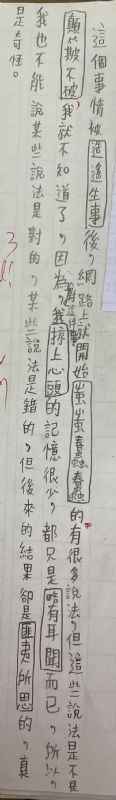 這個事情被造遙生事後，網路上就開始蚩蚩蠢蠢的有很多說法，但這些說法是不是
顛撲不破我就不知道了，因為我掠上心頭的記憶很少，都只是略有耳聞而已，所以
我也不能說某些說法是對的，某些說法是錯的，但後來的結果卻是匪夷所思的，真
是奇怪。